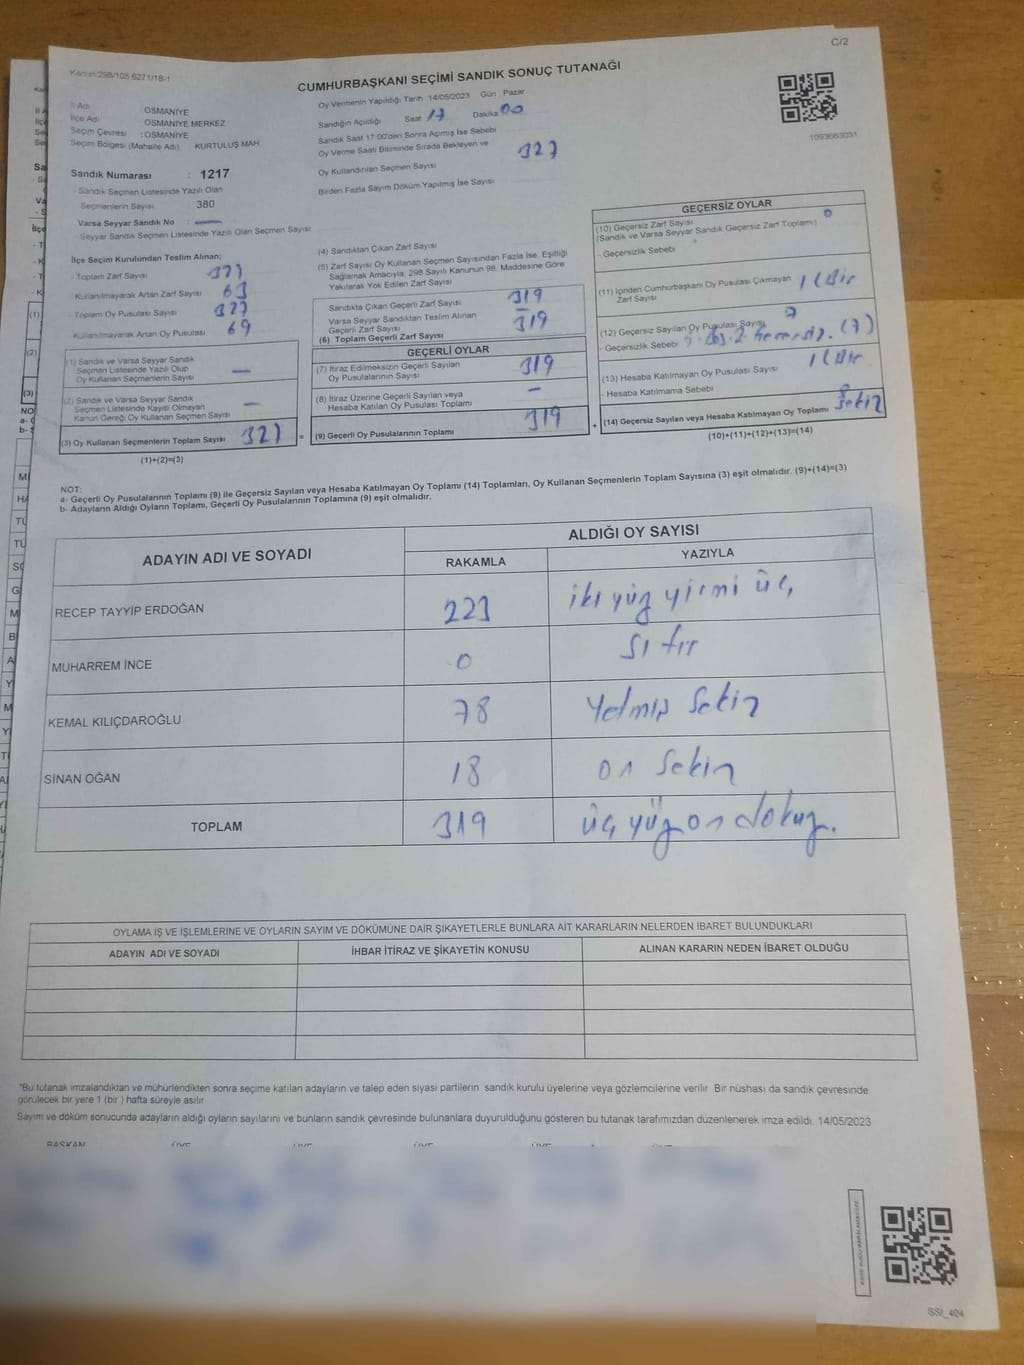 C/2
Kanun:298/105 6271/18-1
CUMHURBAŞKANI SEÇİMİ SANDIK SONUÇ TUTANAĞI
İl Adı OSMANİYE
İlçe Adı OSMANİYE MERKEZ
Seçim Çevresi : OSMANİYE
Seçim Bölgesi (Mahalle Adı) KURTULUŞ MAH.
Sandık Numarası : 1217
- Sandık Seçmen Listesinde Yazılı Olan
Seçmenlerin Sayısı 380
Varsa Seyyar Sandık No : —
- Seyyar Sandık Seçmen Listesinde Yazılı Olan Seçmen Sayısı
Oy Vermenin Yapıldığı Tarih :14/05/2023 Gün : Pazar
Sandığın Açıldığı Saat 17 Dakika 00
Sandık Saat 17:00'den Sonra Açımış İse Sebebi
Oy Verme Saati Bitiminde Sırada Bekleyen ve
Oy Kullandırılan Seçmen Sayısı 327
Birden Fazla Sayım Döküm Yapılmış İse Sayısı
1093663031
İlçe Seçim Kurulundan Teslim Alınan;
- Toplam Zarf Sayısı
- Kullanılmayarak Artan Zarf Sayısı 63
- Toplam Oy Pusulası Sayısı
Kullanılmayarak Artan Oy Pusulası 69
(1) Sandık ve Varsa Seyyar Sandık
Seçmen Listesinde Yazılı Olup
Oy Kullanan Seçmenlerin Sayısı —
(2) Sandık ve Varsa Seyyar Sandık
Seçmen Listesinde Kayıtlı Olmayan
Kanun Gereği Oy Kullanan Seçmen Sayısı —
(3) Oy Kullanan Seçmenlerin Toplam Sayısı 327 =
(1)+(2)=(3)
(4) Sandıktan Çıkan Zarf Sayısı
(5) Zarf Sayısı Oy Kullanan Seçmen Sayısından Fazla İse, Eşitliği
Sağlamak Amacıyla, 298 Sayılı Kanunun 98. Maddesine Göre
Yakılarak Yok Edilen Zarf Sayısı
Sandıkta Çıkan Geçerli Zarf Sayısı 319
Varsa Seyyar Sandıktan Teslim Alınan
Geçerli Zarf Sayısı —
(6) Toplam Geçerli Zarf Sayısı 319
GEÇERLİ OYLAR
(7) İtiraz Edilmeksizin Geçerli Sayılan
Oy Pusulalarının Sayısı 319
(8) İtiraz Üzerine Geçerli Sayılan veya
Hesaba Katılan Oy Pusulası Toplamı —
(9) Geçerli Oy Pusulalarının Toplamı 319 +
GEÇERSİZ OYLAR
(10) Geçersiz Zarf Sayısı 0
(Sandık ve Varsa Seyyar Sandık Geçersiz Zarf Toplamı)
- Geçersizlik Sebebi
(11) İçinden Cumhurbaşkanı Oy Pusulası Çıkmayan
Zarf Sayısı 1 (Bir
(12) Geçersiz Sayılan Oy Pusulası Sayısı 7
- Geçersizlik Sebebi (7)
(13) Hesaba Katılmayan Oy Pusulası Sayısı 1 (Bir
- Hesaba Katılmama Sebebi
(14) Geçersiz Sayılan veya Hesaba Katılmayan Oy Toplamı 8 Sekiz
(10)+(11)+(12)+(13)=(14)
NOT:
a- Geçerli Oy Pusulalarının Toplamı (9) ile Geçersiz Sayılan veya Hesaba Katılmayan Oy Toplamı (14) Toplamları, Oy Kullanan Seçmenlerin Toplam Sayısına (3) eşit olmalıdır. (9)+(14)=(3)
b- Adayların Aldığı Oyların Toplamı, Geçerli Oy Pusulalarının Toplamına (9) eşit olmalıdır.
ADAYIN ADI VE SOYADI ALDIĞI OY SAYISI
RAKAMLA YAZIYLA
RECEP TAYYİP ERDOĞAN 223 iki yüz yirmi üç,
MUHARREM İNCE 0 Sıfır
KEMAL KILIÇDAROĞLU 78 Yetmiş Sekiz
SİNAN OĞAN 18 on Sekiz
TOPLAM 319 üç yüz on dokuz.
OYLAMA İŞ VE İŞLEMLERİNE VE OYLARIN SAYIM VE DÖKÜMÜNE DAİR ŞİKAYETLERLE BUNLARA AİT KARARLARIN NELERDEN İBARET BULUNDUKLARI
ADAYIN ADI VE SOYADI İHBAR İTİRAZ VE ŞİKAYETİN KONUSU ALINAN KARARIN NEDEN İBARET OLDUĞU
"Bu tutanak imzalandıktan ve mühürlendikten sonra seçime katılan adayların ve talep eden siyasi partilerin sandık kurulu üyelerine veya gözlemcilerine verilir. Bir nüshası da sandık çevresinde
görülecek bir yere 1 (bir ) hafta süreyle asılır
Sayım ve döküm sonucunda adayların aldığı oyların sayılarını ve bunların sandık çevresinde bulunanlara duyurulduğunu gösteren bu tutanak tarafımızdan düzenlenerek imza edildi. 14/05/2023
BAŞKAN ÜYE ÜYE ÜYE ÜYE ÜYE
SSI_404